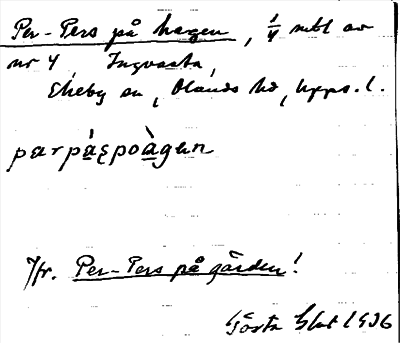 Per-Pers på hagen, 1/4 mtl av
nr 4 Ingvasta,
Ekeby sn, Olands hd, Upps. l.
pærpàspoàgen
Jfr. Per-Pers på gården!
Gösta 1936